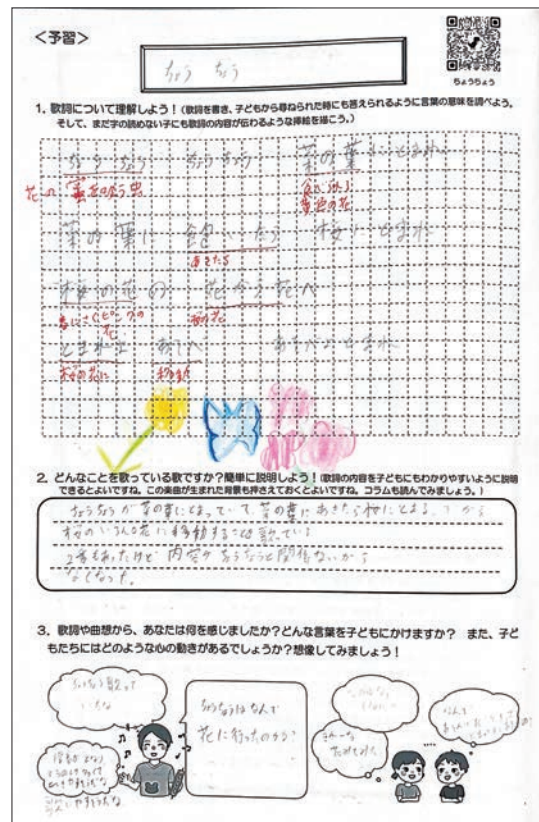 <予習>
ちょう ちょう
ちょうちょう
1. 歌詞について理解しよう!(歌詞を書き、子どもから尋ねられた時にも答えられるように言葉の意味を調べよう。
そして、まだ字の読めない子にも歌詞の内容が伝わるような挿絵を描こう。)
ちょう ちょう ちょう ちょう 菜の葉にとまれ
花の蜜をすう虫
黄色の花
菜の葉に 飽いたら 桜にとまれ
あきたら
桜の花の 花から花へ
春にさくピンクの
花
とまれよ あそべ あそべよ とまれ
桜の花に
2. どんなことを歌っている歌ですか?簡単に説明しよう!(歌詞の内容を子どもにもわかりやすいように説明
できるとよいですね。この楽曲が生まれた背景も押さえておくとよいですね。コラムも読んでみましょう。)
ちょうちょうが菜の葉にとまっていて、菜の葉にあきたら桜にとまる。
桜のいろんな花に移動することを歌っている
2番もあったけど 内容がちょうちょうと関係ないから
なくなった。
3. 歌詞や曲想から、あなたは何を感じましたか?どんな言葉を子どもにかけますか? また、子ど
もたちにはどのような心の動きがあるでしょうか?想像してみましょう!
ちょうちょうはなんで
花に行ったのかな?